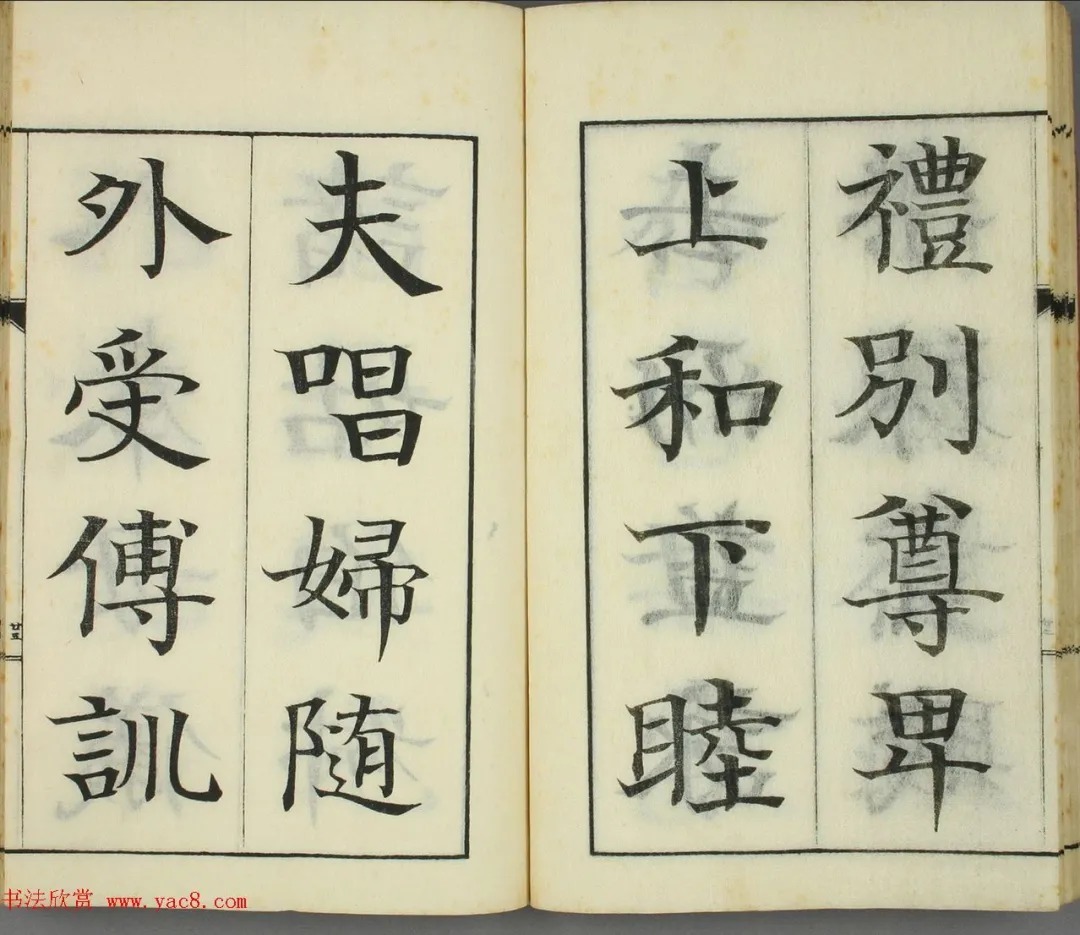 禮別尊卑
上和下睦
夫唱婦隨
外受傅訓
廿五
书法欣赏 www.yac8.com